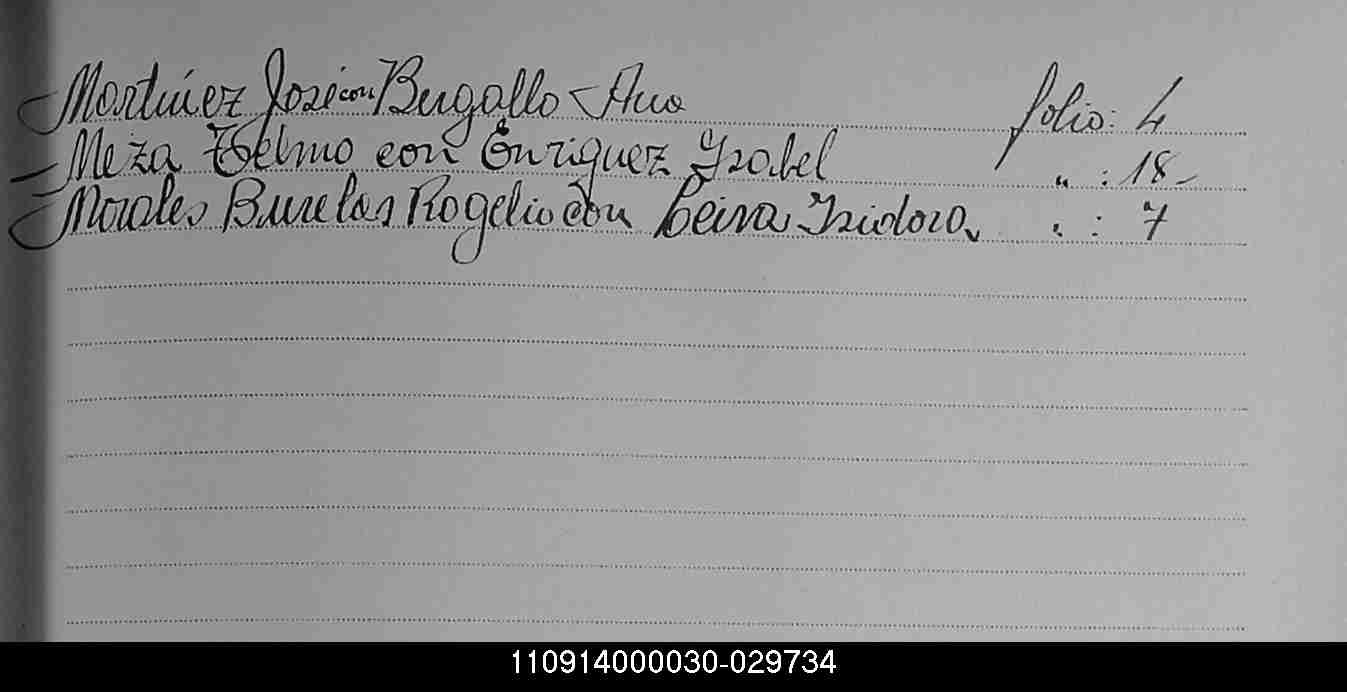 Martinez José con Bergallo Ana folio: 4
Meza Telmo con Enriquez Ysabel " : 18-
Morales Burelas Rogelio con Leiva Isidora, " : 7
110914000030-029734